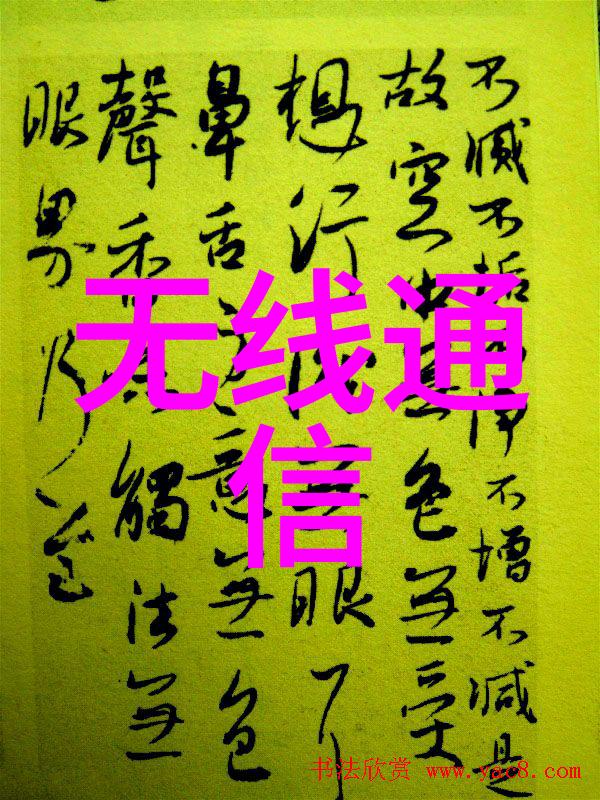 不滅不垢不淨不增不減是
故空中無色無受
想行識無眼耳
鼻舌身意無色
聲香味觸法無
眼界乃至
无线通
信
书法欣赏 www.yac8.com